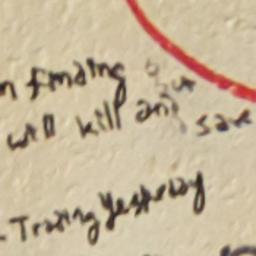 finding out
will kill and save
- Training Yesterday